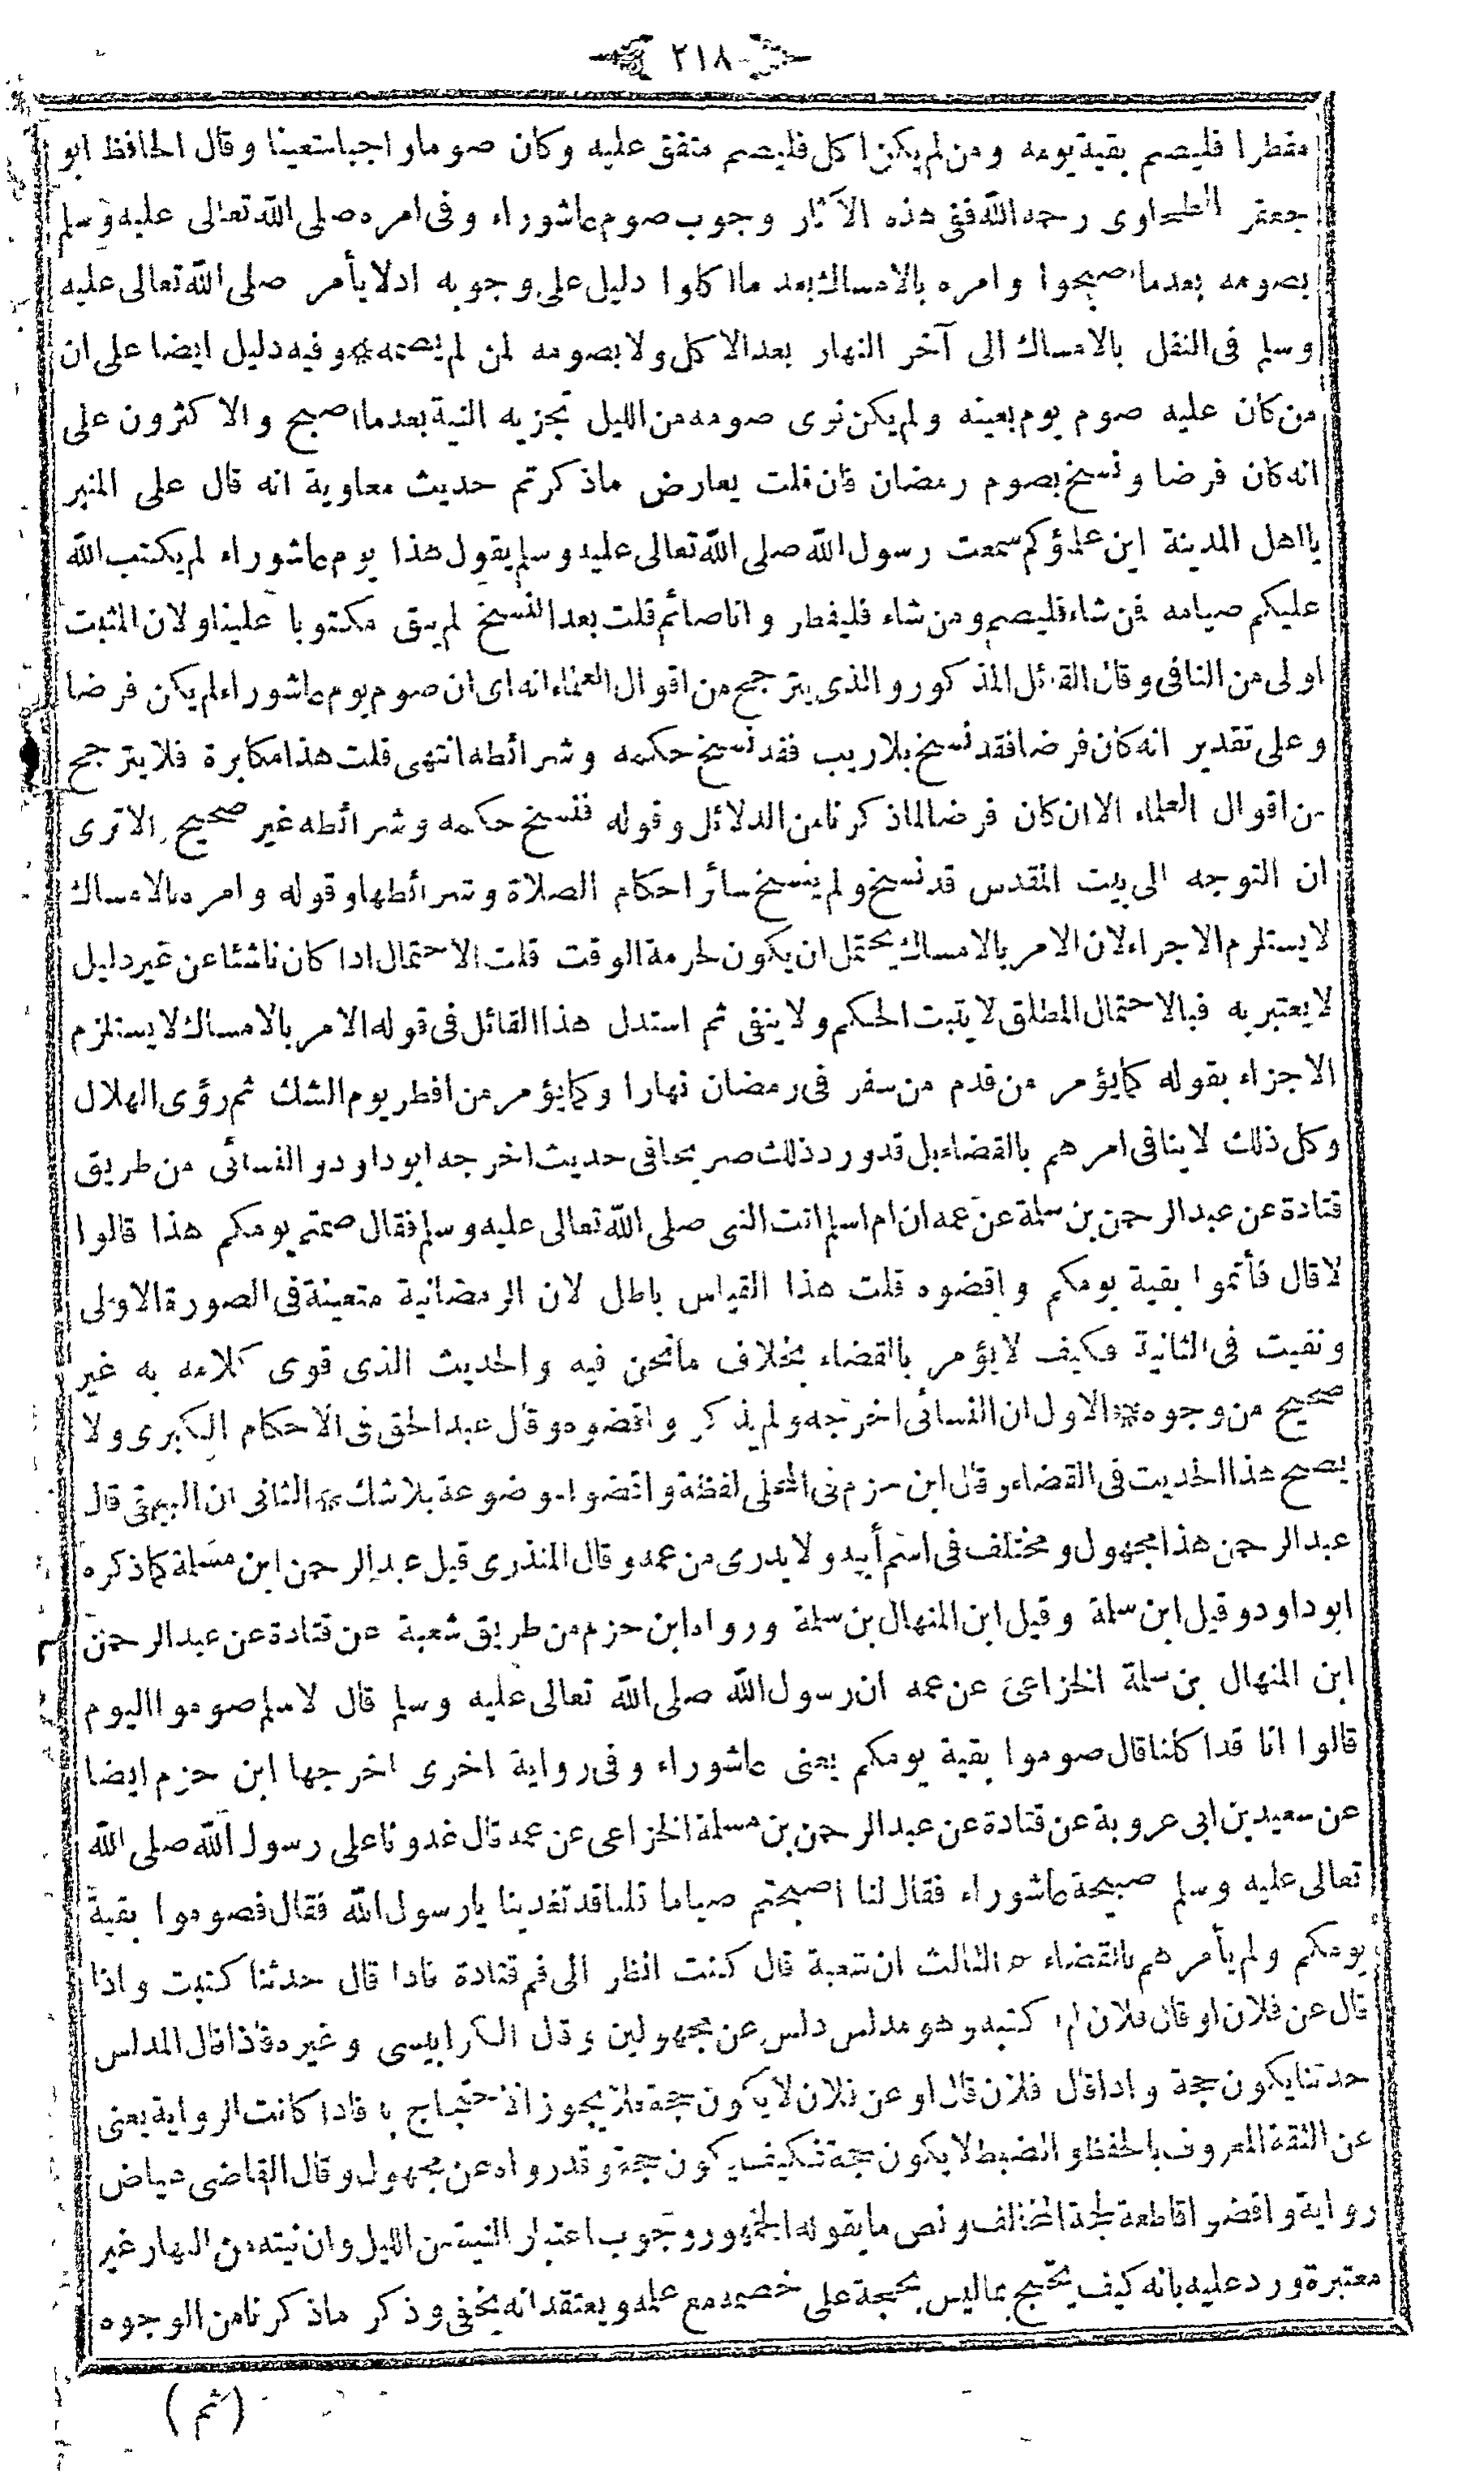 ٢١٨
مفطرا فليصم بقية يومه ومن لم يكن اكل فليصم متفق عليه وكان صوما واجبا متعينا وقال الحافظ ابو
جعفر الطحاوى رحمه الله ففى هذه الآثار وجوب صوم عاشوراء وفى امره صلى الله تعالى عليه وسلم
بصومه بعدما اصبحوا وامره بالامساك بعد ما اكلوا دليل على وجوبه اذ لا يأمر صلى الله تعالى عليه
وسلم فى النفل بالامساك الى آخر النهار بعد الاكل ولا بصومه لمن لم يصمه * وفيه دليل ايضا على ان
من كان عليه صوم يوم بعينه ولم يكن نوى صومه من الليل تجزيه النية بعدما اصبح والاكثرون على
انه كان فرضا ونسخ بصوم رمضان فان قلت يعارض ماذكرتم حديث معاوية انه قال على المنبر
يا اهل المدينة اين علماؤكم سمعت رسول الله صلى الله تعالى عليه وسلم يقول هذا يوم عاشوراء لم يكتب الله
عليكم صيامه فمن شاء فليصم ومن شاء فليفطر وانا صائم قلت بعد النسخ لم يبق مكتوبا علينا ولان المثبت
اولى من النافى وقال القائل المذكور والذى يترجح من اقوال العلماء انه اى ان صوم يوم عاشوراء لم يكن فرضا
وعلى تقدير انه كان فرضا فقد نسخ بلا ريب فقد نسخ حكمه وشرائطه انتهى قلت هذا مكابرة فلا يترجح
من اقوال العلماء الا ان كان فرضا لما ذكرنا من الدلائل وقوله فنسخ حكمه وشرائطه غير صحيح الا ترى
ان التوجه الى بيت المقدس قد نسخ ولم ينسخ سائر احكام الصلاة وشرائطها وقوله وامره بالامساك
لا يستلزم الاجزاء لان الامر بالامساك يحتمل ان يكون لحرمة الوقت قلت الاحتمال اذا كان ناشئا عن غير دليل
لا يعتبر به فبالاحتمال المطلق لا يثبت الحكم ولا ينفى ثم استدل هذا القائل فى قوله الامر بالامساك لا يستلزم
الاجزاء بقوله كما يؤمر من قدم من سفر فى رمضان نهارا وكما يؤمر من افطر يوم الشك ثم رؤى الهلال
وكل ذلك لا ينافى امرهم بالقضاء بل قد ورد ذلك صريحا فى حديث اخرجه ابو داود والنسائى من طريق
قتادة عن عبد الرحمن بن سلمة عن عمه ان اسلم اتت النبى صلى الله تعالى عليه وسلم فقال صمتم يومكم هذا قالوا
لا قال فأتموا بقية يومكم واقضوه قلت هذا القياس باطل لان الرمضانية متعينة فى الصورة الاولى
ونفيت فى الثانية فكيف لا يؤمر بالقضاء بخلاف ما نحن فيه والحديث الذى قوى كلامه به غير
صحيح من وجوه * الاول ان النسائى اخرجه ولم يذكر واقضوه وقال عبد الحق فى الاحكام الكبرى ولا
يصح هذا الحديث فى القضاء وقال ابن حزم فى المحلى لفظة واقضوا موضوعة بلا شك * الثانى ان البيهقى قال
عبد الرحمن هذا مجهول ومختلف فى اسم أبيه ولا يدرى من عمه وقال المنذرى قيل عبد الرحمن ابن مسلمة كما ذكره
ابو داود وقيل ابن سلمة وقيل ابن المنهال بن سلمة ورواه ابن حزم من طريق شعبة عن قتادة عن عبد الرحمن
ابن المنهال بن سلمة الخزاعى عن عمه ان رسول الله صلى الله تعالى عليه وسلم قال لاسلم صوموا اليوم
قالوا انا قد اكلنا قال صوموا بقية يومكم يعنى عاشوراء وفى رواية اخرى اخرجها ابن حزم ايضا
عن سعيد بن ابى عروبة عن قتادة عن عبد الرحمن بن مسلمة الخزاعى عن عمه قال غدونا على رسول الله صلى الله
تعالى عليه وسلم صبيحة عاشوراء فقال لنا اصبحتم صياما قلنا قد تغدينا يا رسول الله فقال فصوموا بقية
يومكم ولم يأمرهم بالقضاء * الثالث ان شعبة قال كنت انظر الى فم قتادة فاذا قال حدثنا كتبت واذا
قال عن فلان او قال فلان لم اكتبه وهو مدلس دلس عن مجهولين وقال الكرابيسى وغيره فاذا قال المدلس
حدثنا يكون حجة واذا قال فلان قال او عن فلان لا يكون حجة فلا يجوز الاحتجاج به فاذا كانت الرواية يعنى
عن الثقة المعروف بالحفظ والضبط لا يكون حجة فكيف يكون حجة وقد رواه عن مجهول وقال القاضى عياض
رواية واقضوا قاطعة لحجة المخالف ونص ما يقوله الجمهور وجوب اعتبار النية من الليل وان نيته من النهار غير
معتبرة ورد عليه بانه كيف يحتج بما ليس بحجة على خصمه مع علمه ويعتقد انه يخفى وذكر ما ذكرنا من الوجوه
( ثم )